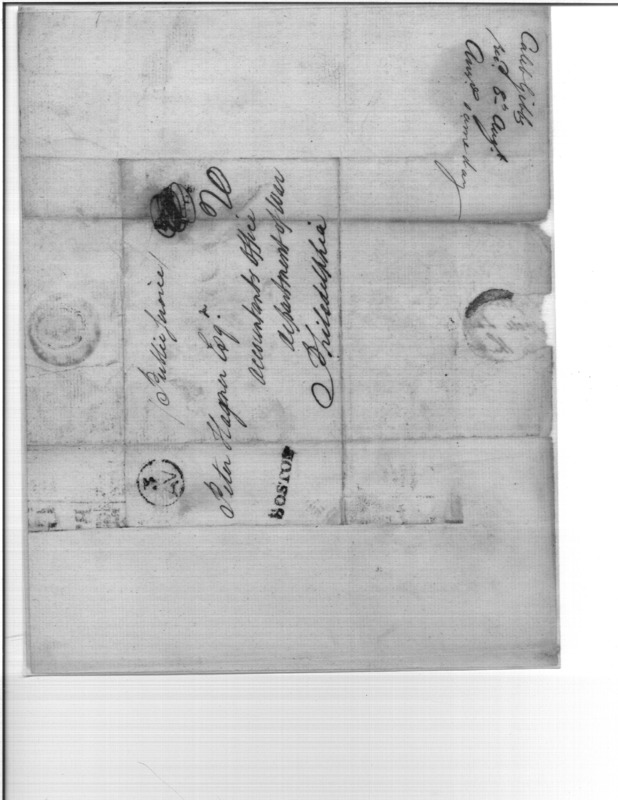 Caleb Gibbs
recd. 8th Augt.
Ansd. same day
(Public Service)
20
Peter Hagner Esqr.
accountants Office
department of War
Philadelphia
BOSTON
3